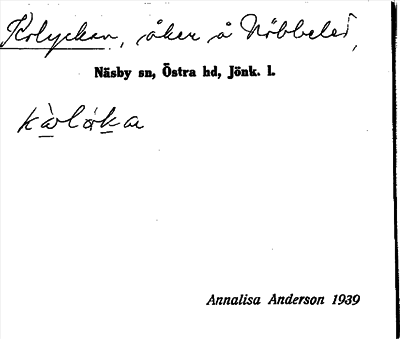 Kolyckan, åker å Nöbbele,
Näsby sn, Östra hd, Jönk. l.
Annalisa Anderson 1939